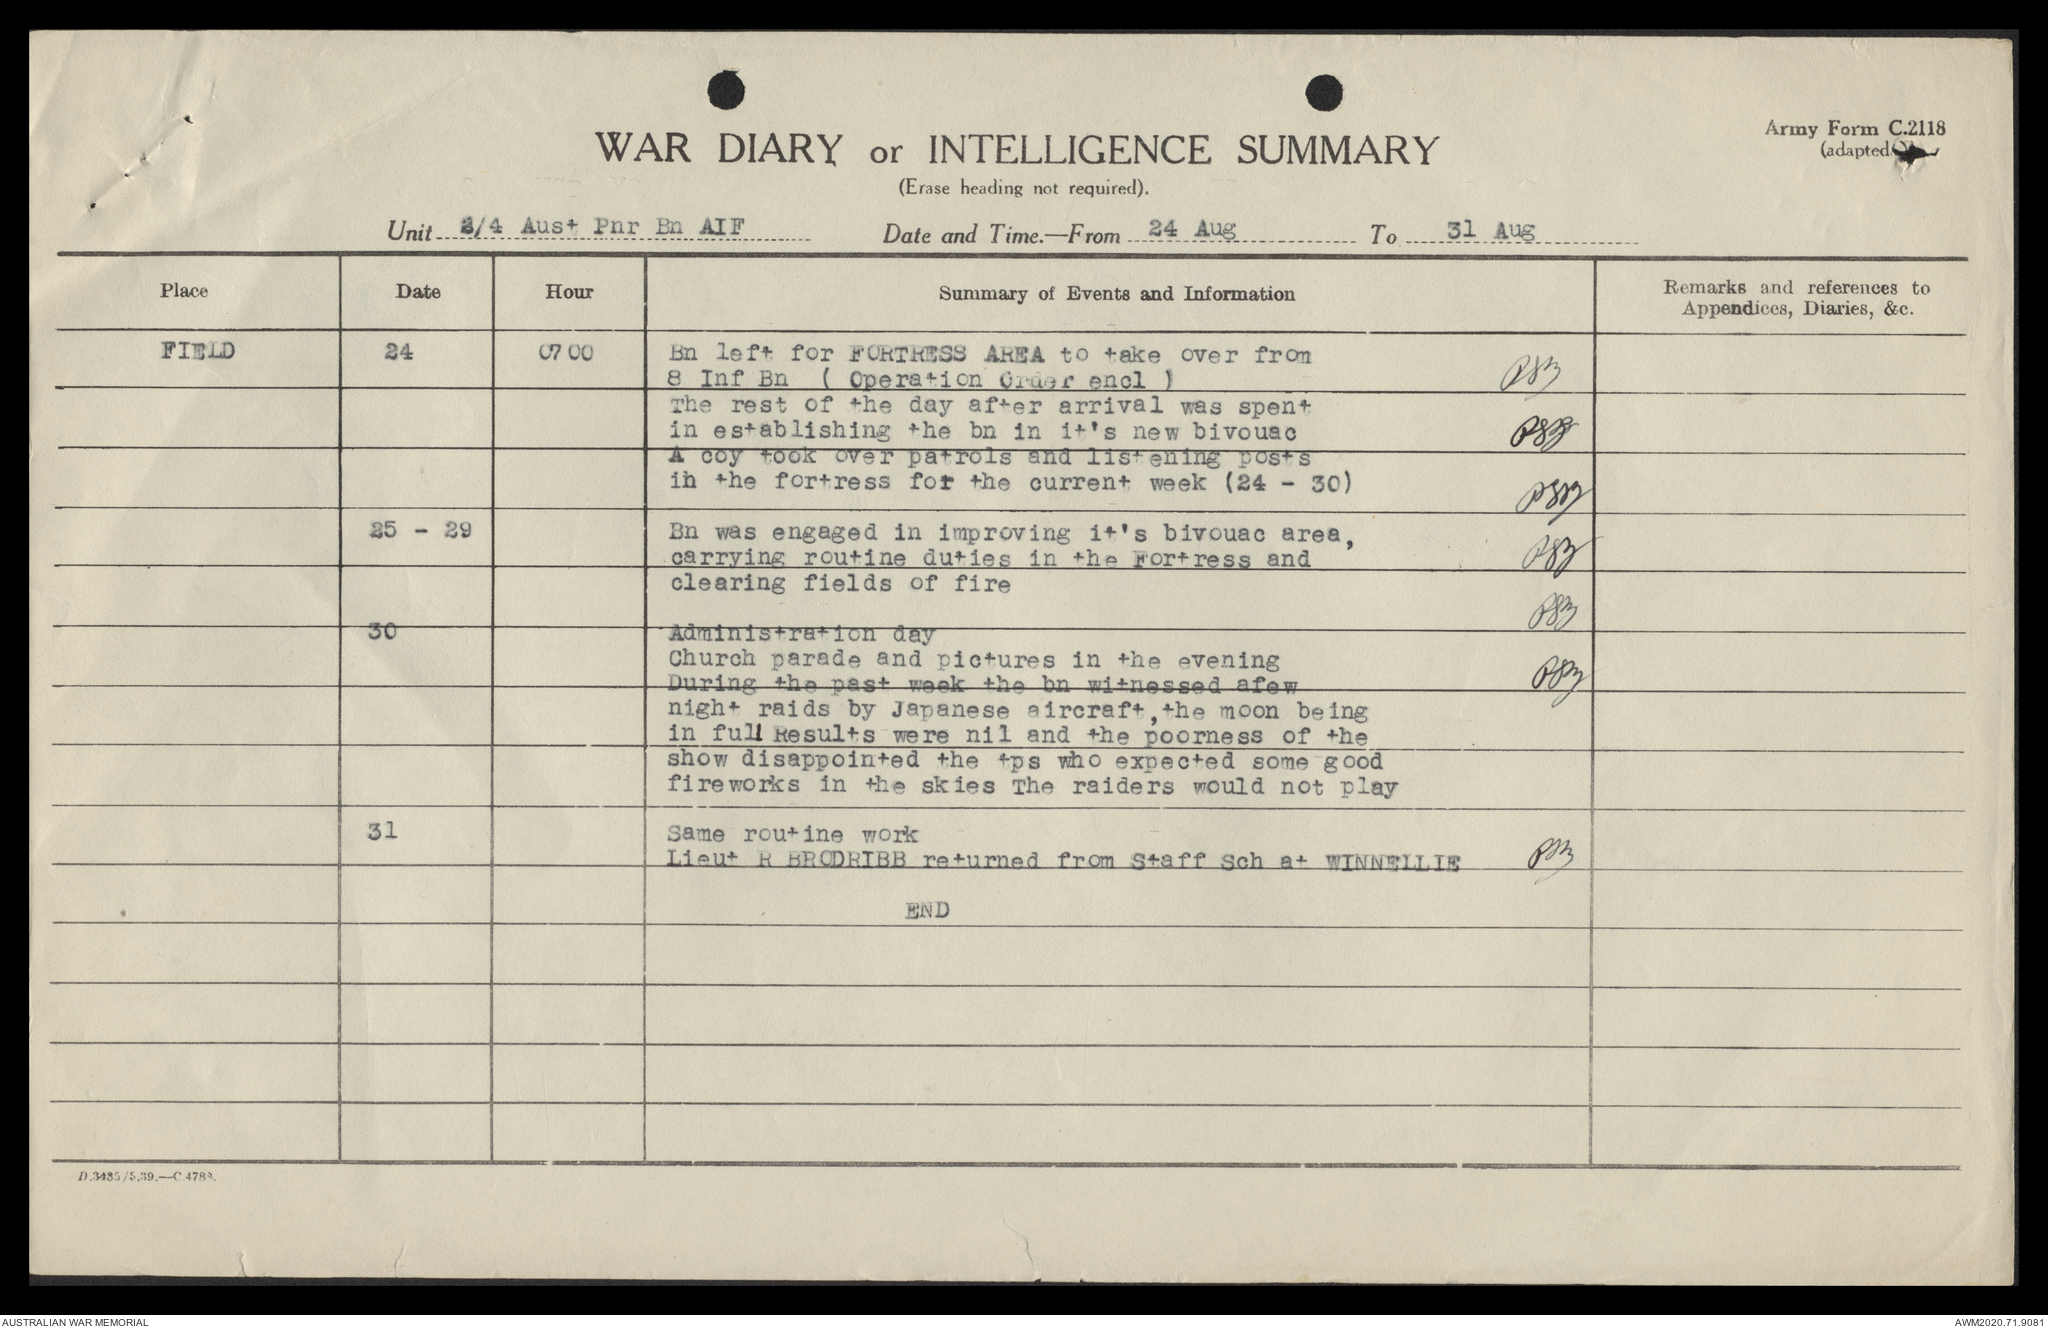 WAR DIARY or INTELLIGENCE SUMMARY
(Erase heading not required).
Army Form C.2118
(adapted)
Unit 2/4 Aust Pnr Bn AIF Date and Time.—From 24 Aug To 31 Aug
Place Date Hour Summary of Events and Information Remarks and references to
Appendices, Diaries, &c.
FIELD 24 0700 Bn left for FORTRESS AREA to take over from
8 Inf Bn ( Operation Order encl )
The rest of the day after arrival was spent
in establishing the bn in it's new bivouac
A coy took over patrols and listening posts
in the fortress for the current week (24 - 30)
25 - 29 Bn was engaged in improving it's bivouac area,
carrying routine duties in the Fortress and
clearing fields of fire
30 Administration day
Church parade and pictures in the evening
During the past week the bn witnessed afew
night raids by Japanese aircraft,the moon being
in full Results were nil and the poorness of the
show disappointed the tps who expected some good
fireworks in the skies The raiders would not play
31 Same routine work
Lieut R BRODRIBB returned from Staff Sch at WINNELLIE
END
AUSTRALIAN WAR MEMORIAL AWM2020.71.9081